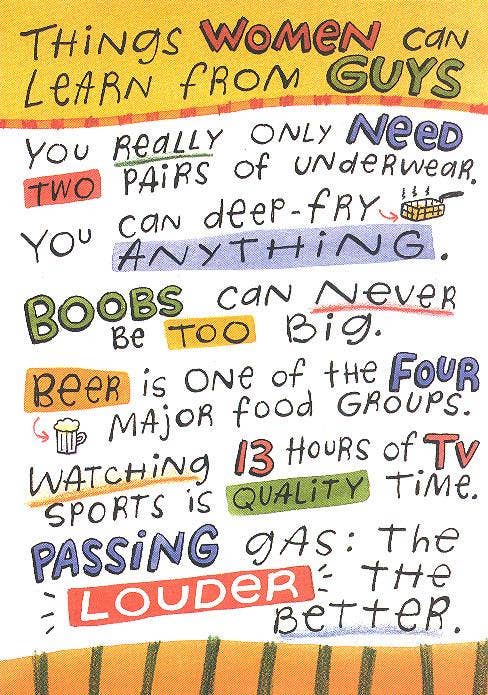 THiNgS WOMeN CaN
LeARN fROM GUYS
YOU ReaLLY ONLY NeeD
TWO PAiRS Of UNdeRWeaR.
YOU CaN deeP-fRY
ANYTHiNG.
BOOBS CaN NeveR
Be TOO Big.
BeeR iS ONe Of tHe FOUR
MAjOR food GROUPS.
WATCHiNg 13 HOURS Of TV
SPORTS iS QUALiTY TiMe.
PASSiNG gAS: The
LOUDeR tHe
BeTTeR.